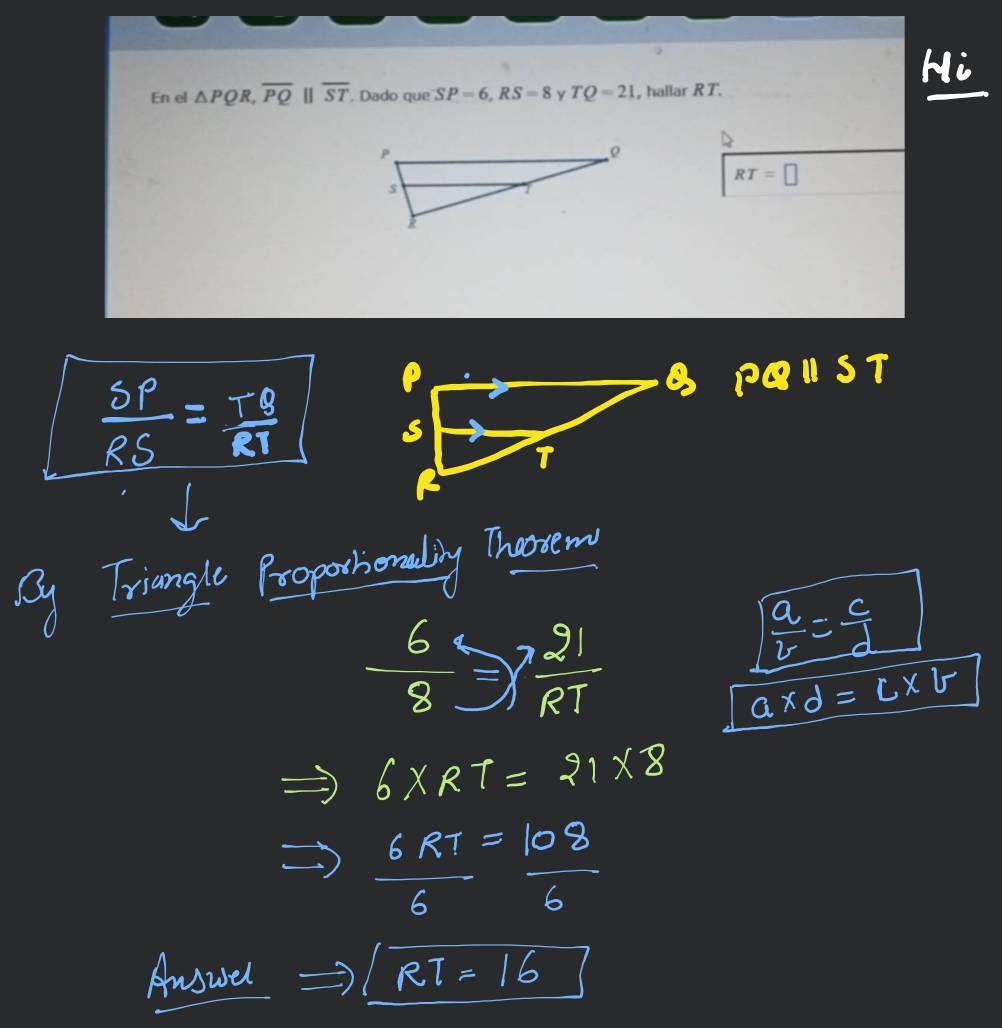 Hi
En el △PQR, PQ || ST. Dado que SP = 6, RS = 8 y TQ = 21, hallar RT.
P
Q
S
T
R
RT = □
SP/RS = TQ/RT
P
Q
S
T
R
PQ || ST
By Triangle Proportionality Theorem
6/8 = 21/RT
a/b = c/d
a×d = c×b
⇒ 6×RT = 21×8
⇒ 6RT/6 = 108/6
Answer ⇒ RT = 16